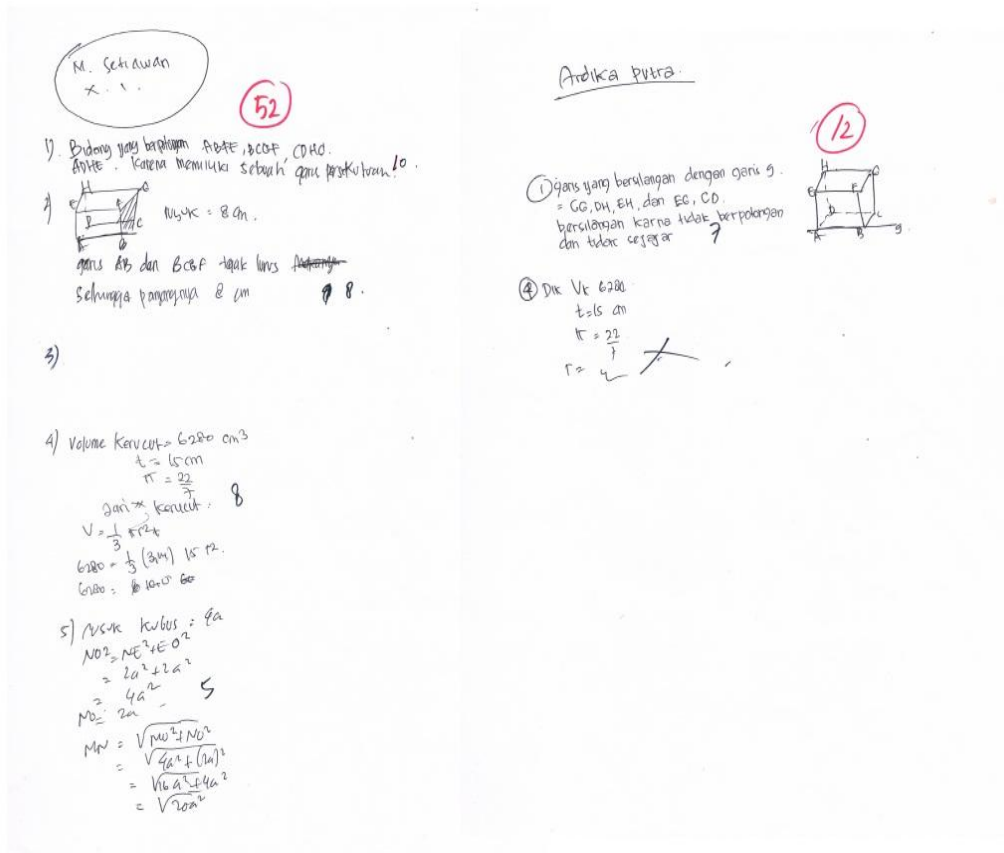 M. Setiawan
X. 1.
52
1). Bidang yang berpotongan ABFE, BCGF, CDHG.
ADHE. Karena memiliki sebuah garis persekutuan. 10.
2)
H G
E F
D C
A B
rusuk = 8 cm.
garis AB dan BCGF tegak lurus
Sehingga panjangnya 8 cm 8.
3)
4) Volume kerucut = 6280 cm3
t = 15 cm
π = 22/7
Jari kerucut. 8
V = 1/3 πr2t
6280 = 1/3 (3,14) 15 r2.
6280 =
5) rusuk kubus : 4a
NO2 = NE2 + EO2
= 2a2 + 2a2
= 4a2
NO = 2a 5
MN = √MO2 + NO2
= √4a2 + (2a)2
= √16a2 + 4a2
= √20a2
Ardika Putra.
12
1 garis yang bersilangan dengan garis g.
= CG, DH, EH, dan EG, CD.
bersilangan karna tidak berpotongan
dan tidak sejajar 7
H G
E F
D C
A B g.
4 Dik Vk 6280
t=15 cm
π = 22/7
r =